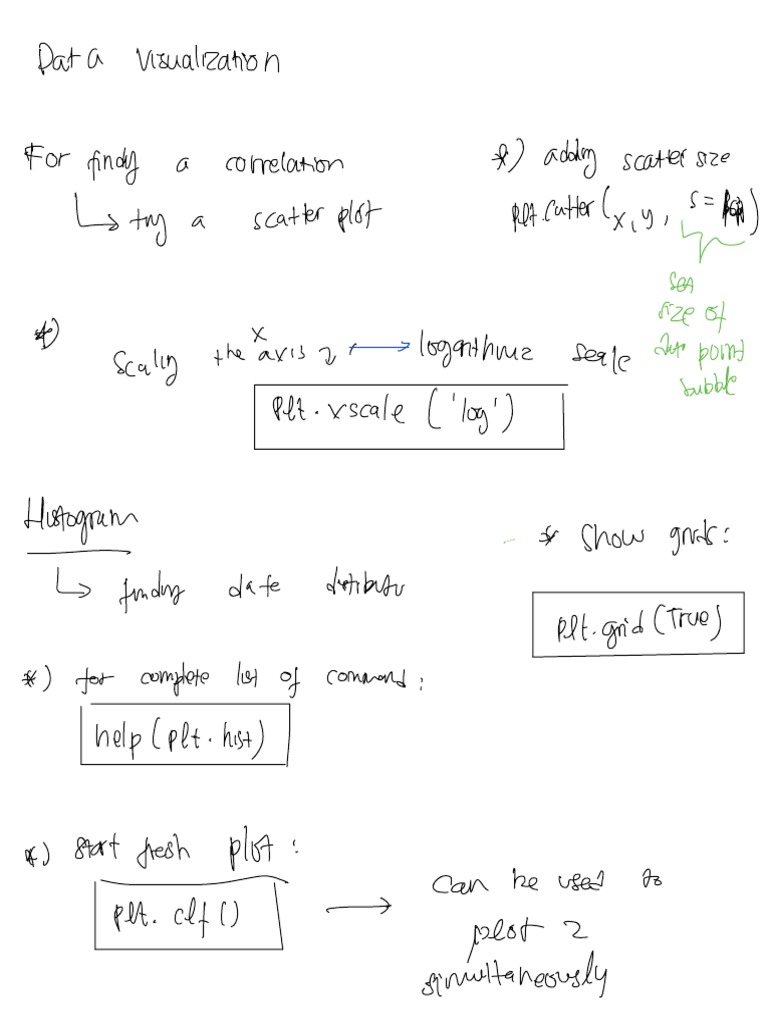 Data Visualization
For findg a correlation
↳ try a scatter plot
*) adding scatter size
plt.catter(x, y, s = pop)
size of
point
bubble
*) Scaling the x axis → logarithmic scale
plt.xscale ('log')
Histogram
↳ finding date distributn
* Show grids:
plt.grid(True)
*) for complete list of command:
help(plt.hist)
*) start fresh plot:
plt.clf() → can be used to
plot 2
simultaneously